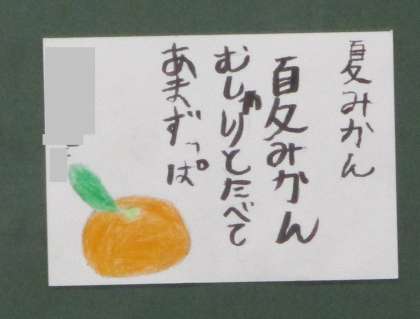 夏みかん
夏みかん
むしゃりとたべて
あまずっぱ